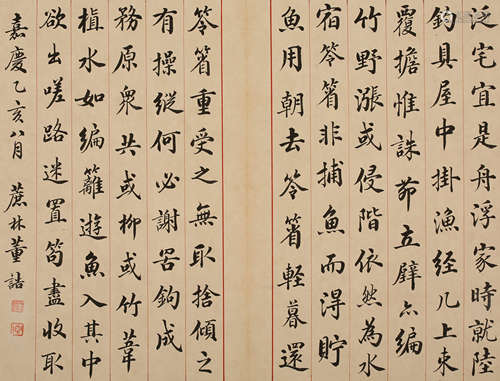 泛宅宜是舟浮家時就陸
鈎具屋中掛漁經几上束
覆擔惟誅茆立壁亦編
竹野漲或侵階依然為水
宿笭箵非捕魚而淂貯
魚用朝去笭箵輕暮還
笭箵重受之無取捨傾之
有操縱何必謝罟鈎成
務原衆共或柳或竹葦
植水如編籬遊魚入其中
欲出嗟路迷置笱盡收取
嘉慶乙亥八月 蔗林董誥